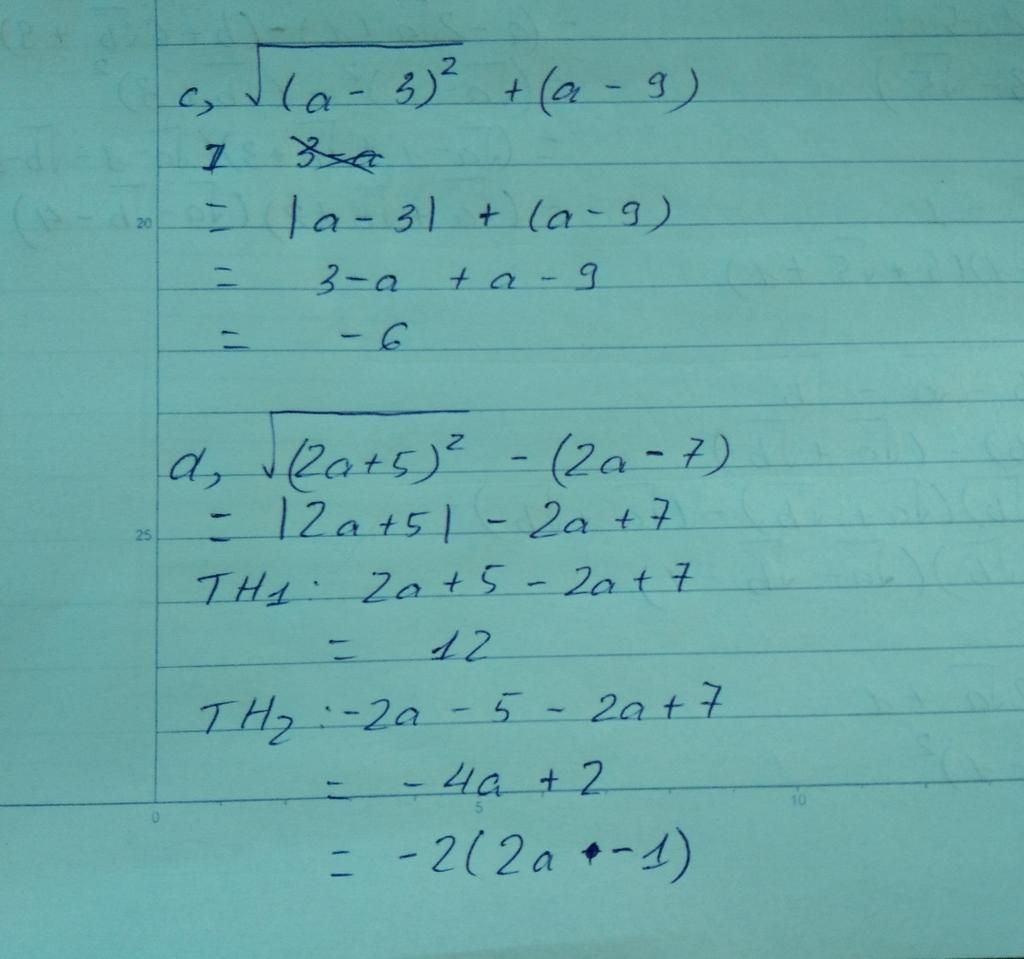 c, √(a - 3)² + (a - 9)
= |a - 3| + (a - 9)
= 3 - a + a - 9
= - 6
d, √(2a + 5)² - (2a - 7)
= |2a + 5| - 2a + 7
TH1: 2a + 5 - 2a + 7
= 12
TH2: -2a - 5 - 2a + 7
= - 4a + 2
= -2(2a - 1)
20
25
0
5
10